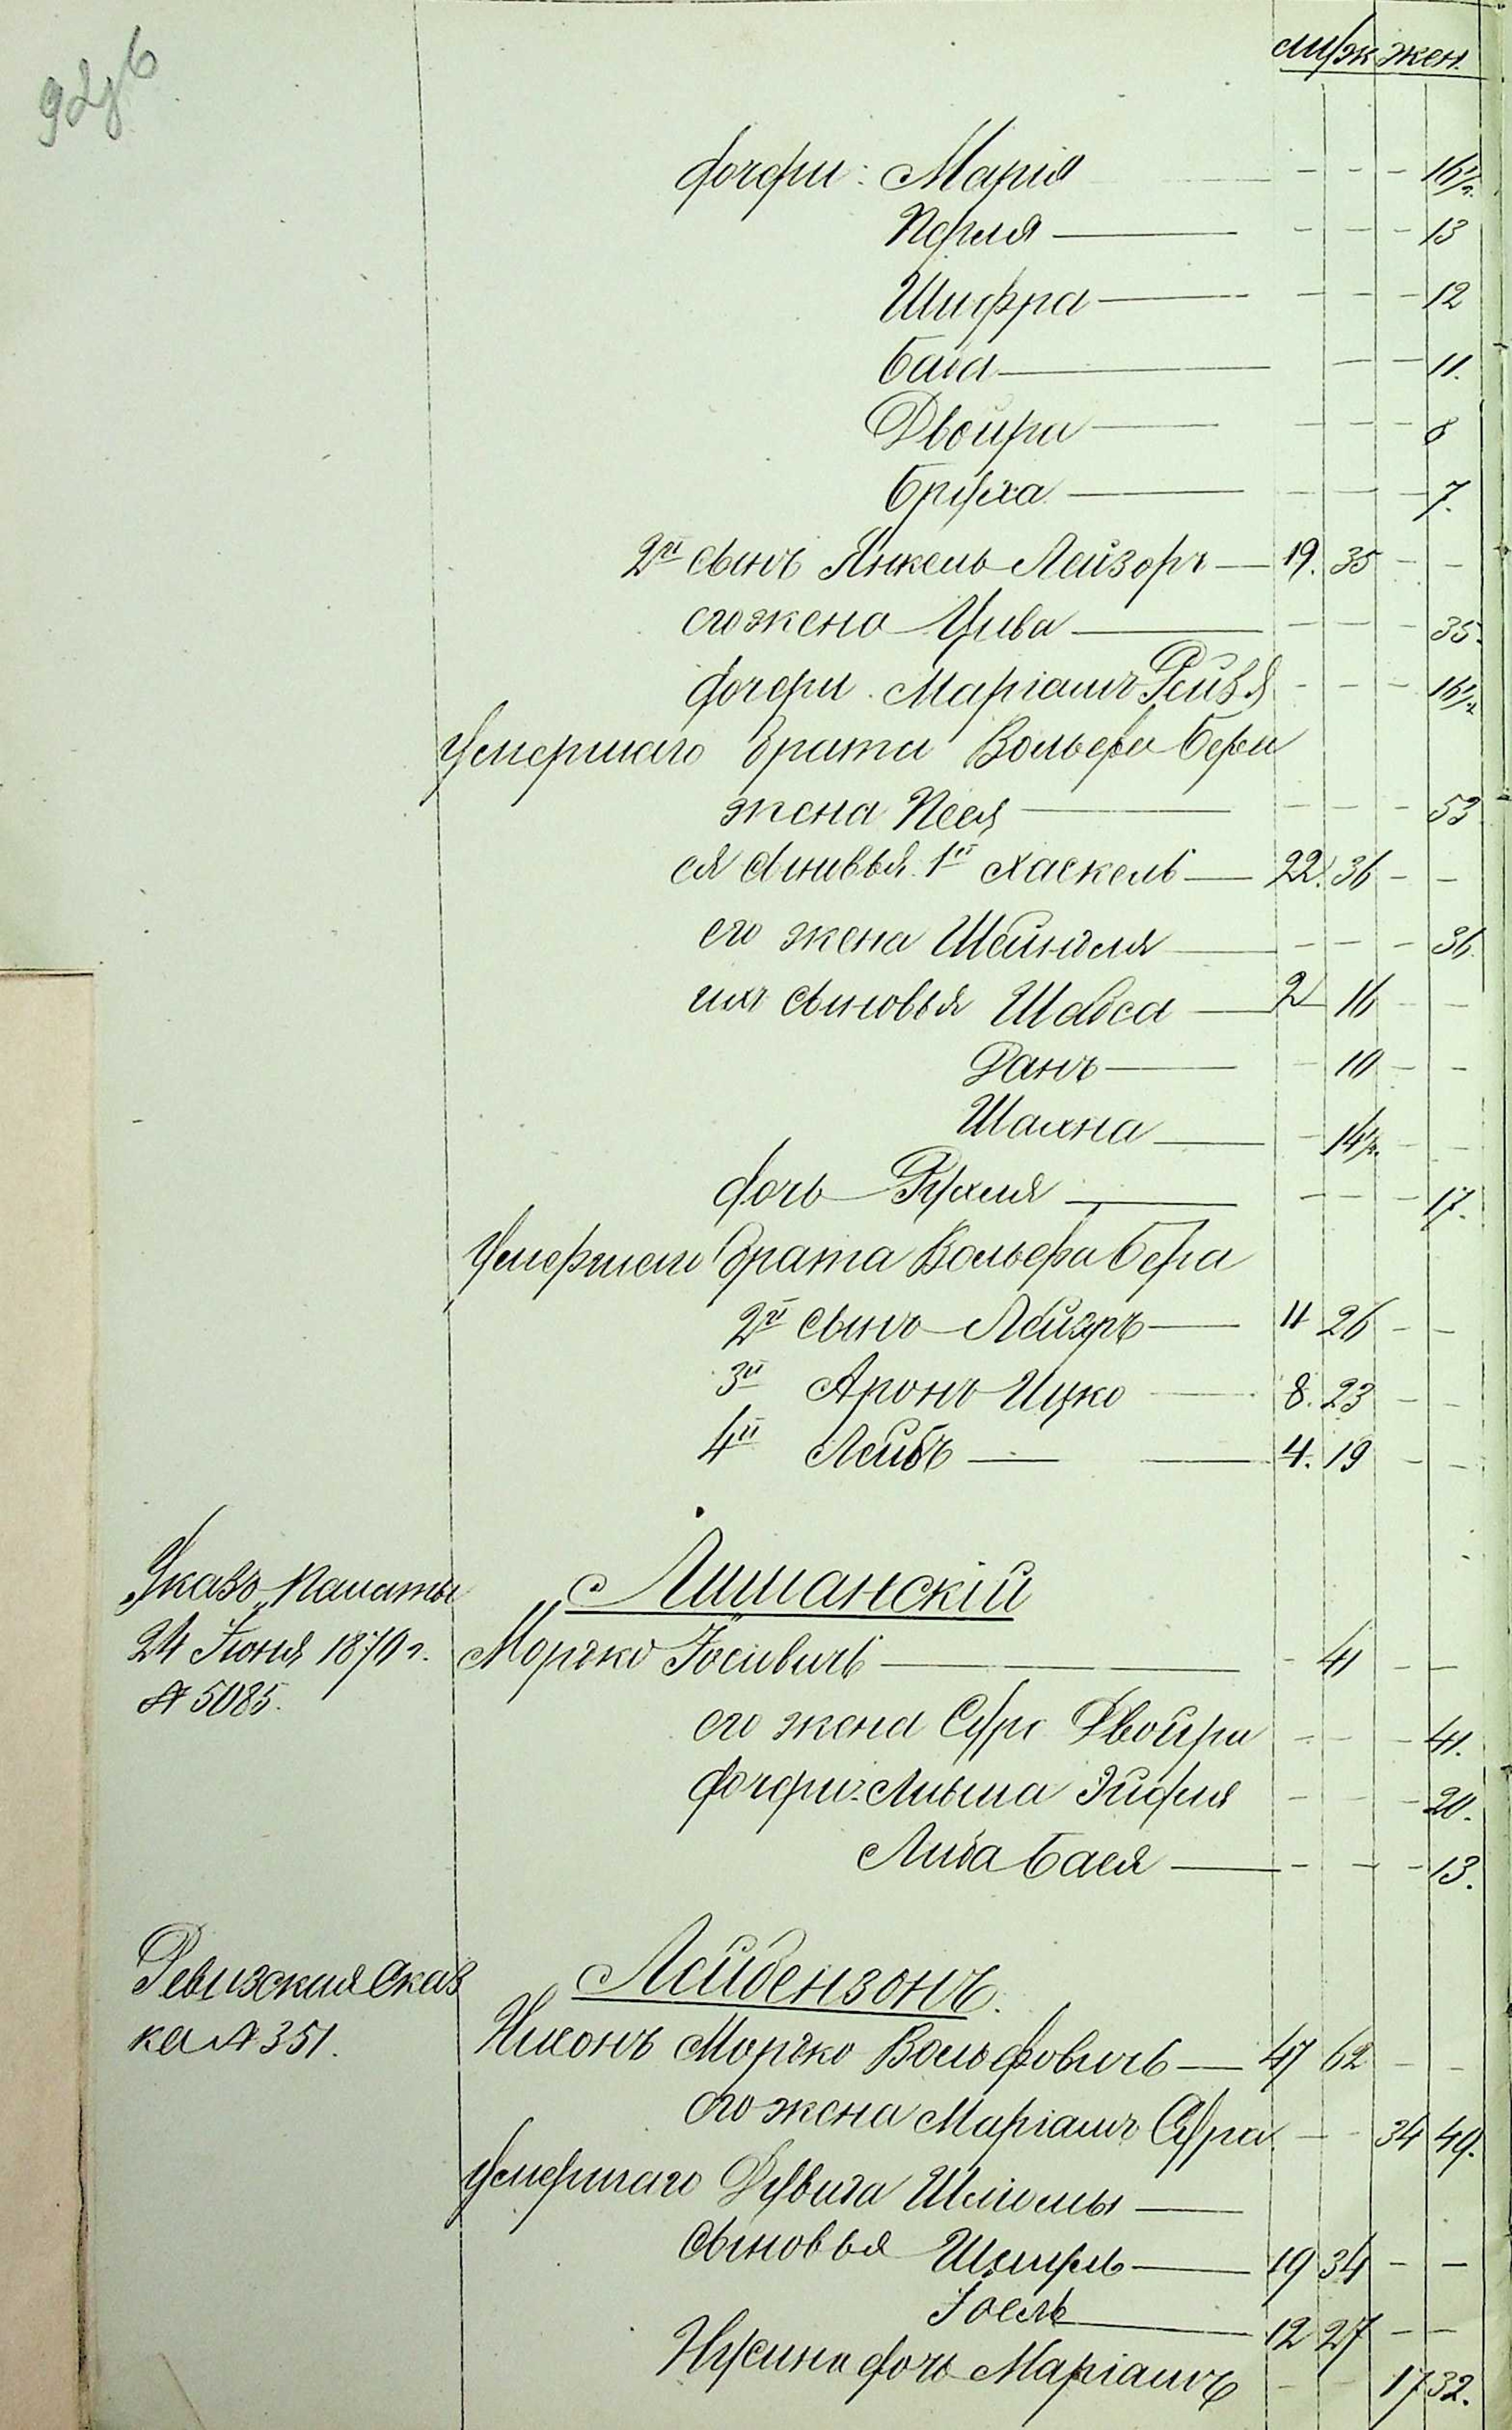 муж жен.
дочери: Марія - - - 16½.
Перля - - - 13
Шифра - - - 12
Бася - - 11.
Двойра - - - 8
Бруха - - - 7.
2й сынъ Янкель Лейзоръ 19. 35 - -
его жена Цива - - - 35.
дочери Маріамъ Рейзя - - - 16½
Умершаго брата Вольфа Бера
жена Песя - - - 53
ея сыновья 1й Хаскель 22. 36 - -
его жена Шейндля - - - 36.
ихъ сыновья Шабса 2 16 - -
Данъ - 10 - -
Шахна - 14½. - -
дочь Рухля - - - 17.
Умершаго брата Вольфа Бера
2й сынъ Лейзръ 11 26 - -
3й Аронъ Ицко 8. 23 - -
4й Лейбъ 4. 19 - -
Лиманскій
Указъ Палаты
24 Іюня 1870 г.
№ 5085.
Мошко Іосивичъ - 41 - -
его жена Сура Двойра - - - 41.
дочери: Эйдля - - - 20.
Либа Бася - - - 13.
Лейбензонъ.
Ревизская Сказ
ка № 351.
Мошко Вольфовичъ 47 62 - -
его жена Маріамъ Сура - - 34 49.
Умершаго Шліомы
сыновья Шмуль 19 34 - -
Іосель 12 27 - -
дочь Маріамъ - - 17 32.